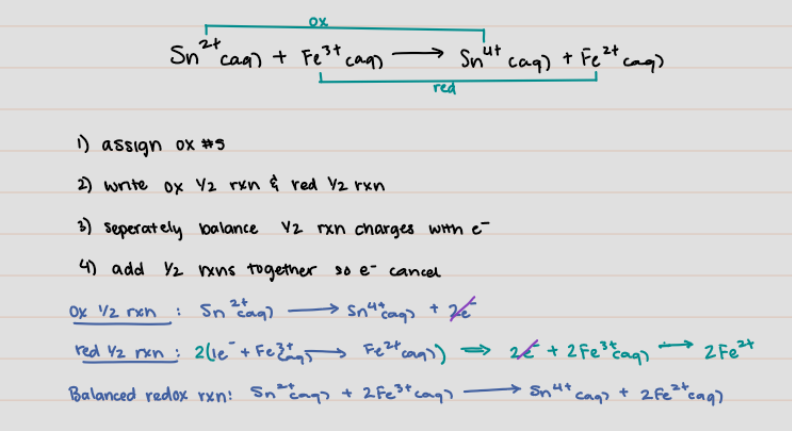 ox
Sn²⁺(aq) + Fe³⁺(aq) → Sn⁴⁺(aq) + Fe²⁺(aq)
red
1) assign ox #s
2) write ox 1/2 rxn & red 1/2 rxn
3) seperately balance 1/2 rxn charges with e⁻
4) add 1/2 rxns together so e⁻ cancel
ox 1/2 rxn : Sn²⁺(aq) → Sn⁴⁺(aq) + 2e⁻
red 1/2 rxn : 2(1e⁻ + Fe³⁺(aq) → Fe²⁺(aq)) ⇒ 2e⁻ + 2Fe³⁺(aq) → 2Fe²⁺
Balanced redox rxn: Sn²⁺(aq) + 2Fe³⁺(aq) → Sn⁴⁺(aq) + 2Fe²⁺(aq)